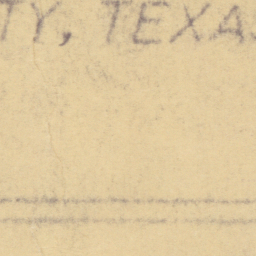 TY, TEXAS